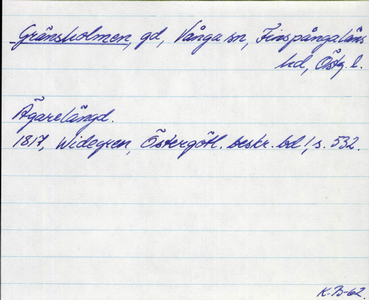 Gränsholmen, gd, Vånga sn, Finspångaläns
hd, Östg. l.
Ägarelängd.
1817, Widegren, Östergötl. beskr. bd 1, s. 532.
K.B-62.